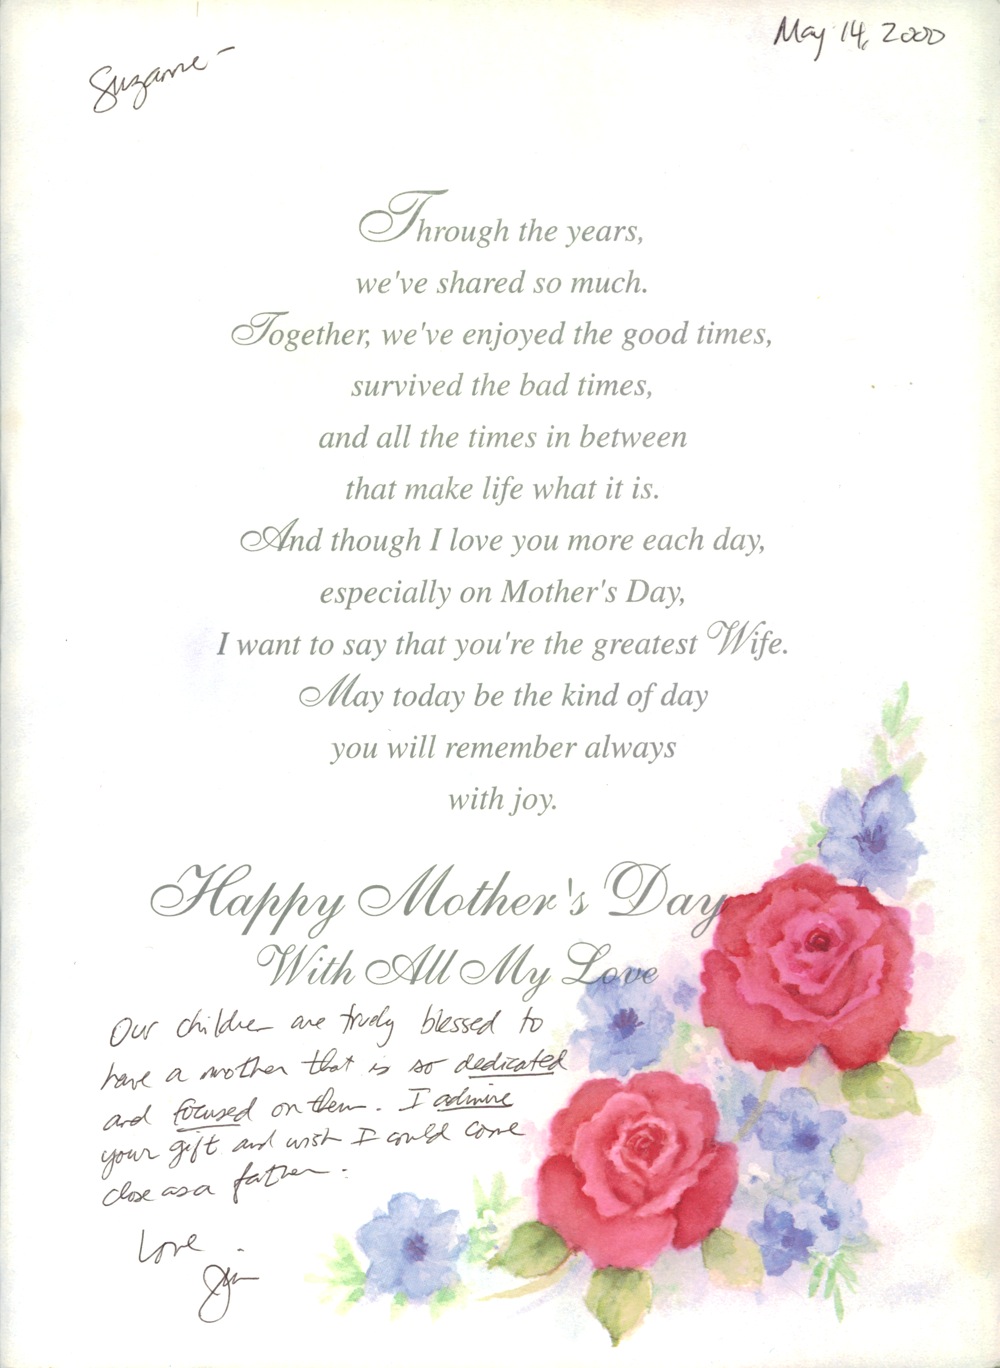 May 14, 2000
Suzanne -
Through the years,
we've shared so much.
Together, we've enjoyed the good times,
survived the bad times,
and all the times in between
that make life what it is.
And though I love you more each day,
especially on Mother's Day,
I want to say that you're the greatest Wife.
May today be the kind of day
you will remember always
with joy.
Happy Mother's Day
With All My Love
Our children are truly blessed to
have a mother that is so dedicated
and focused on them. I admire
your gift and wish I could come
close as a father.
Love
Jim